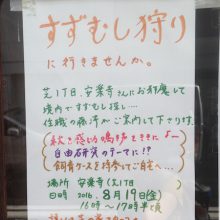 すずむし狩り
に行きませんか。
芝1丁目、安楽寺さんにお邪魔して
境内ですずむし探し…
住職の藤澤がご案内して下さり。
秋を感じる鳴声をききに♪ー
自由研究のテーマに!?
飼育ケースを持参してご自宅へ…
場所 安楽寺(芝1丁目
日時 2016. 8月19日(金)
16時〜17時半頃